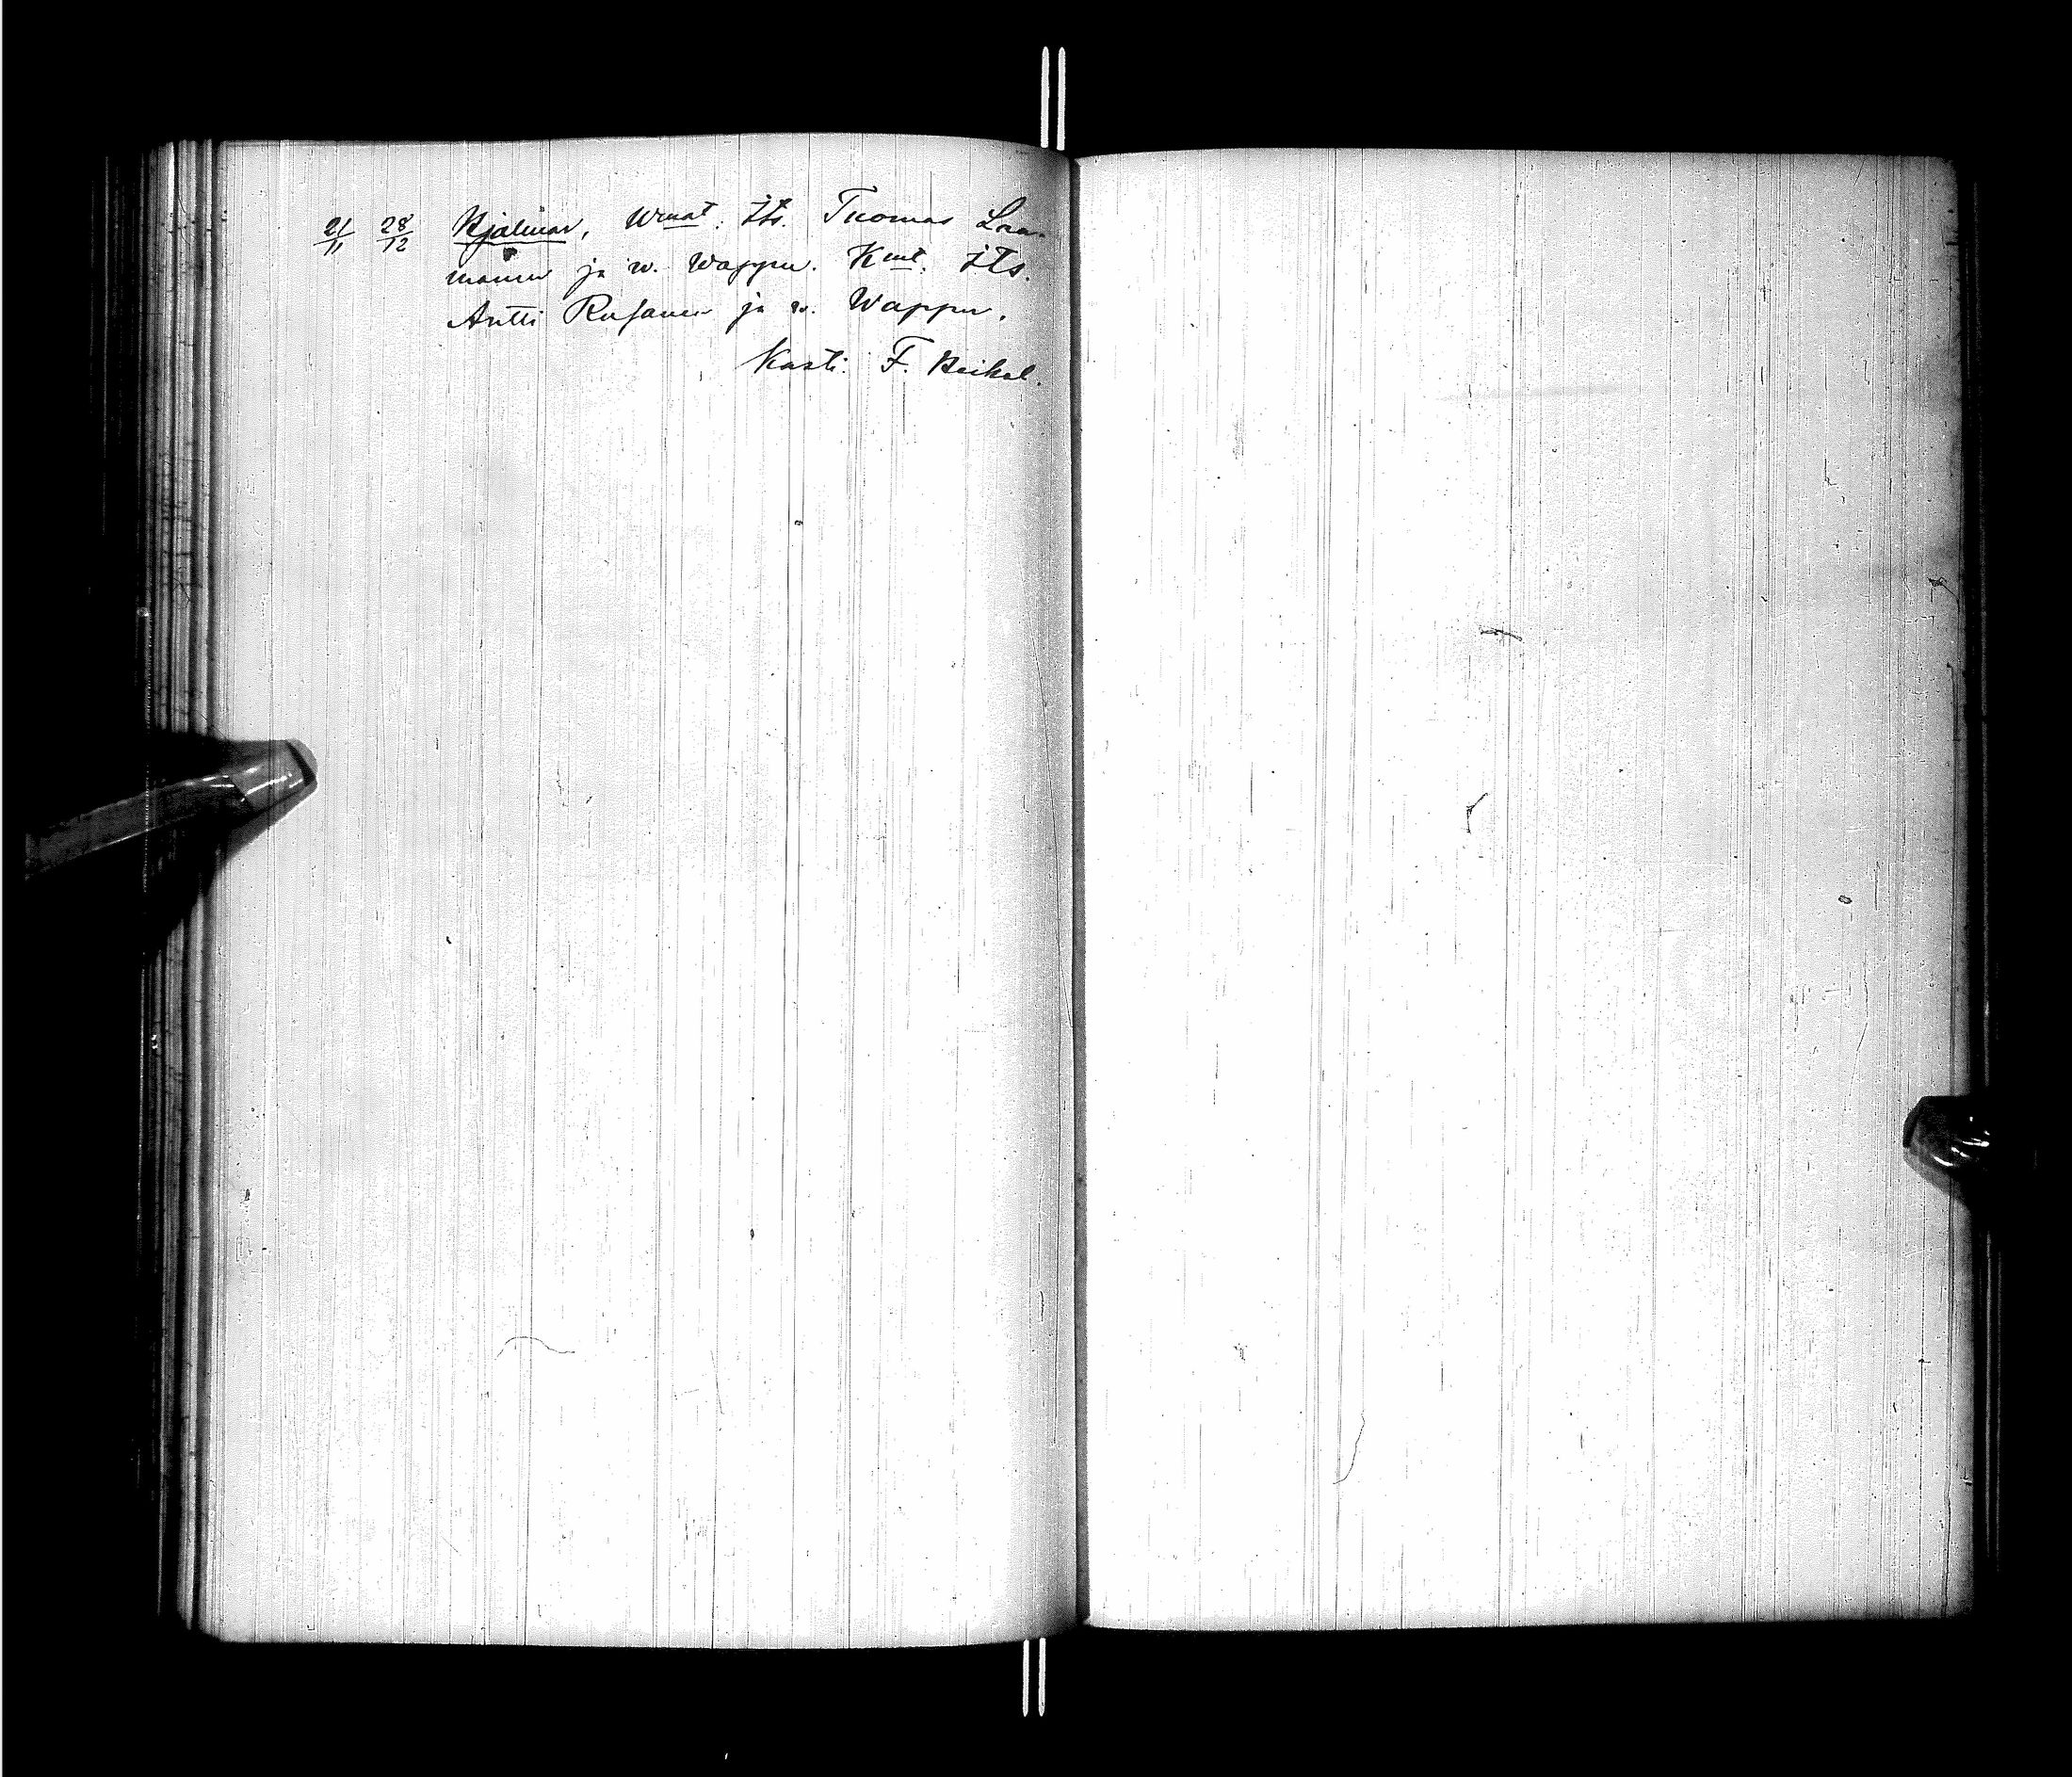 21/11 28/12 Hjalmar, Wmat. Its. Tuomas Laa-
manen ja w. Wappu. Kmt. Its.
Antti Rusanen ja w. Wappu.
Kasti: F. Heikel.